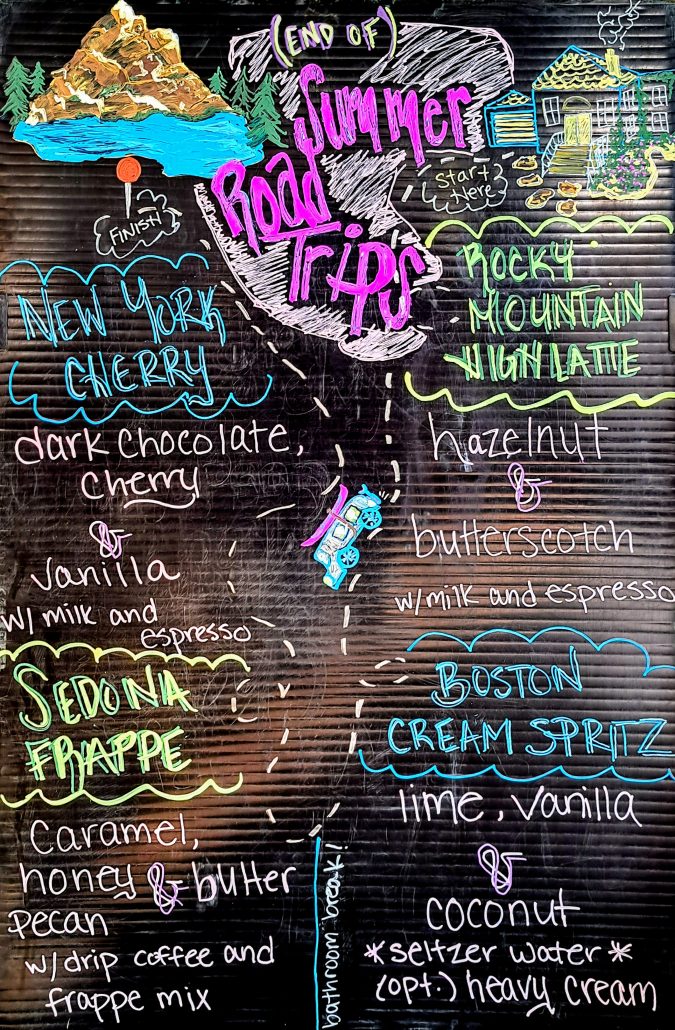 (END OF)
Summer
Road
Trips
Start
Here
FINISH
NEW YORK
CHERRY
dark chocolate,
cherry
&
vanilla
w/ milk and
espresso
ROCKY
MOUNTAIN
HIGH LATTE
hazelnut
&
butterscotch
w/ milk and espresso
SEDONA
FRAPPE
caramel,
honey & butter
pecan
w/ drip coffee and
frappe mix
bathroom break!
BOSTON
CREAM SPRITZ
lime, vanilla
&
coconut
*seltzer water*
(opt.) heavy cream